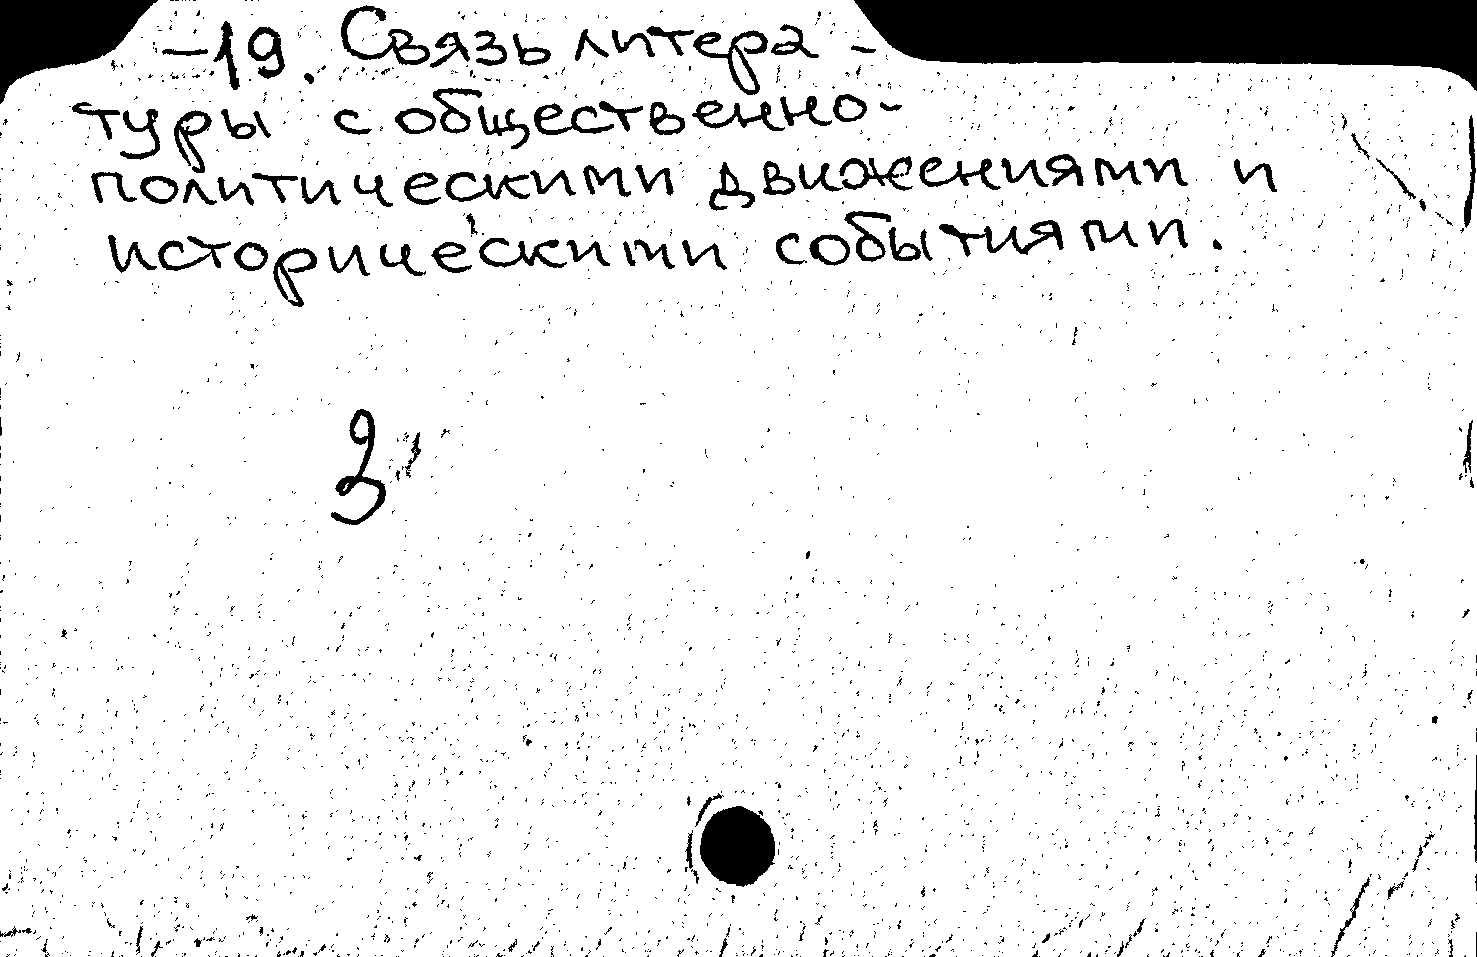 -19. Связь литера-
туры с общественно-
политическими движениями и
историческими событиями.
3